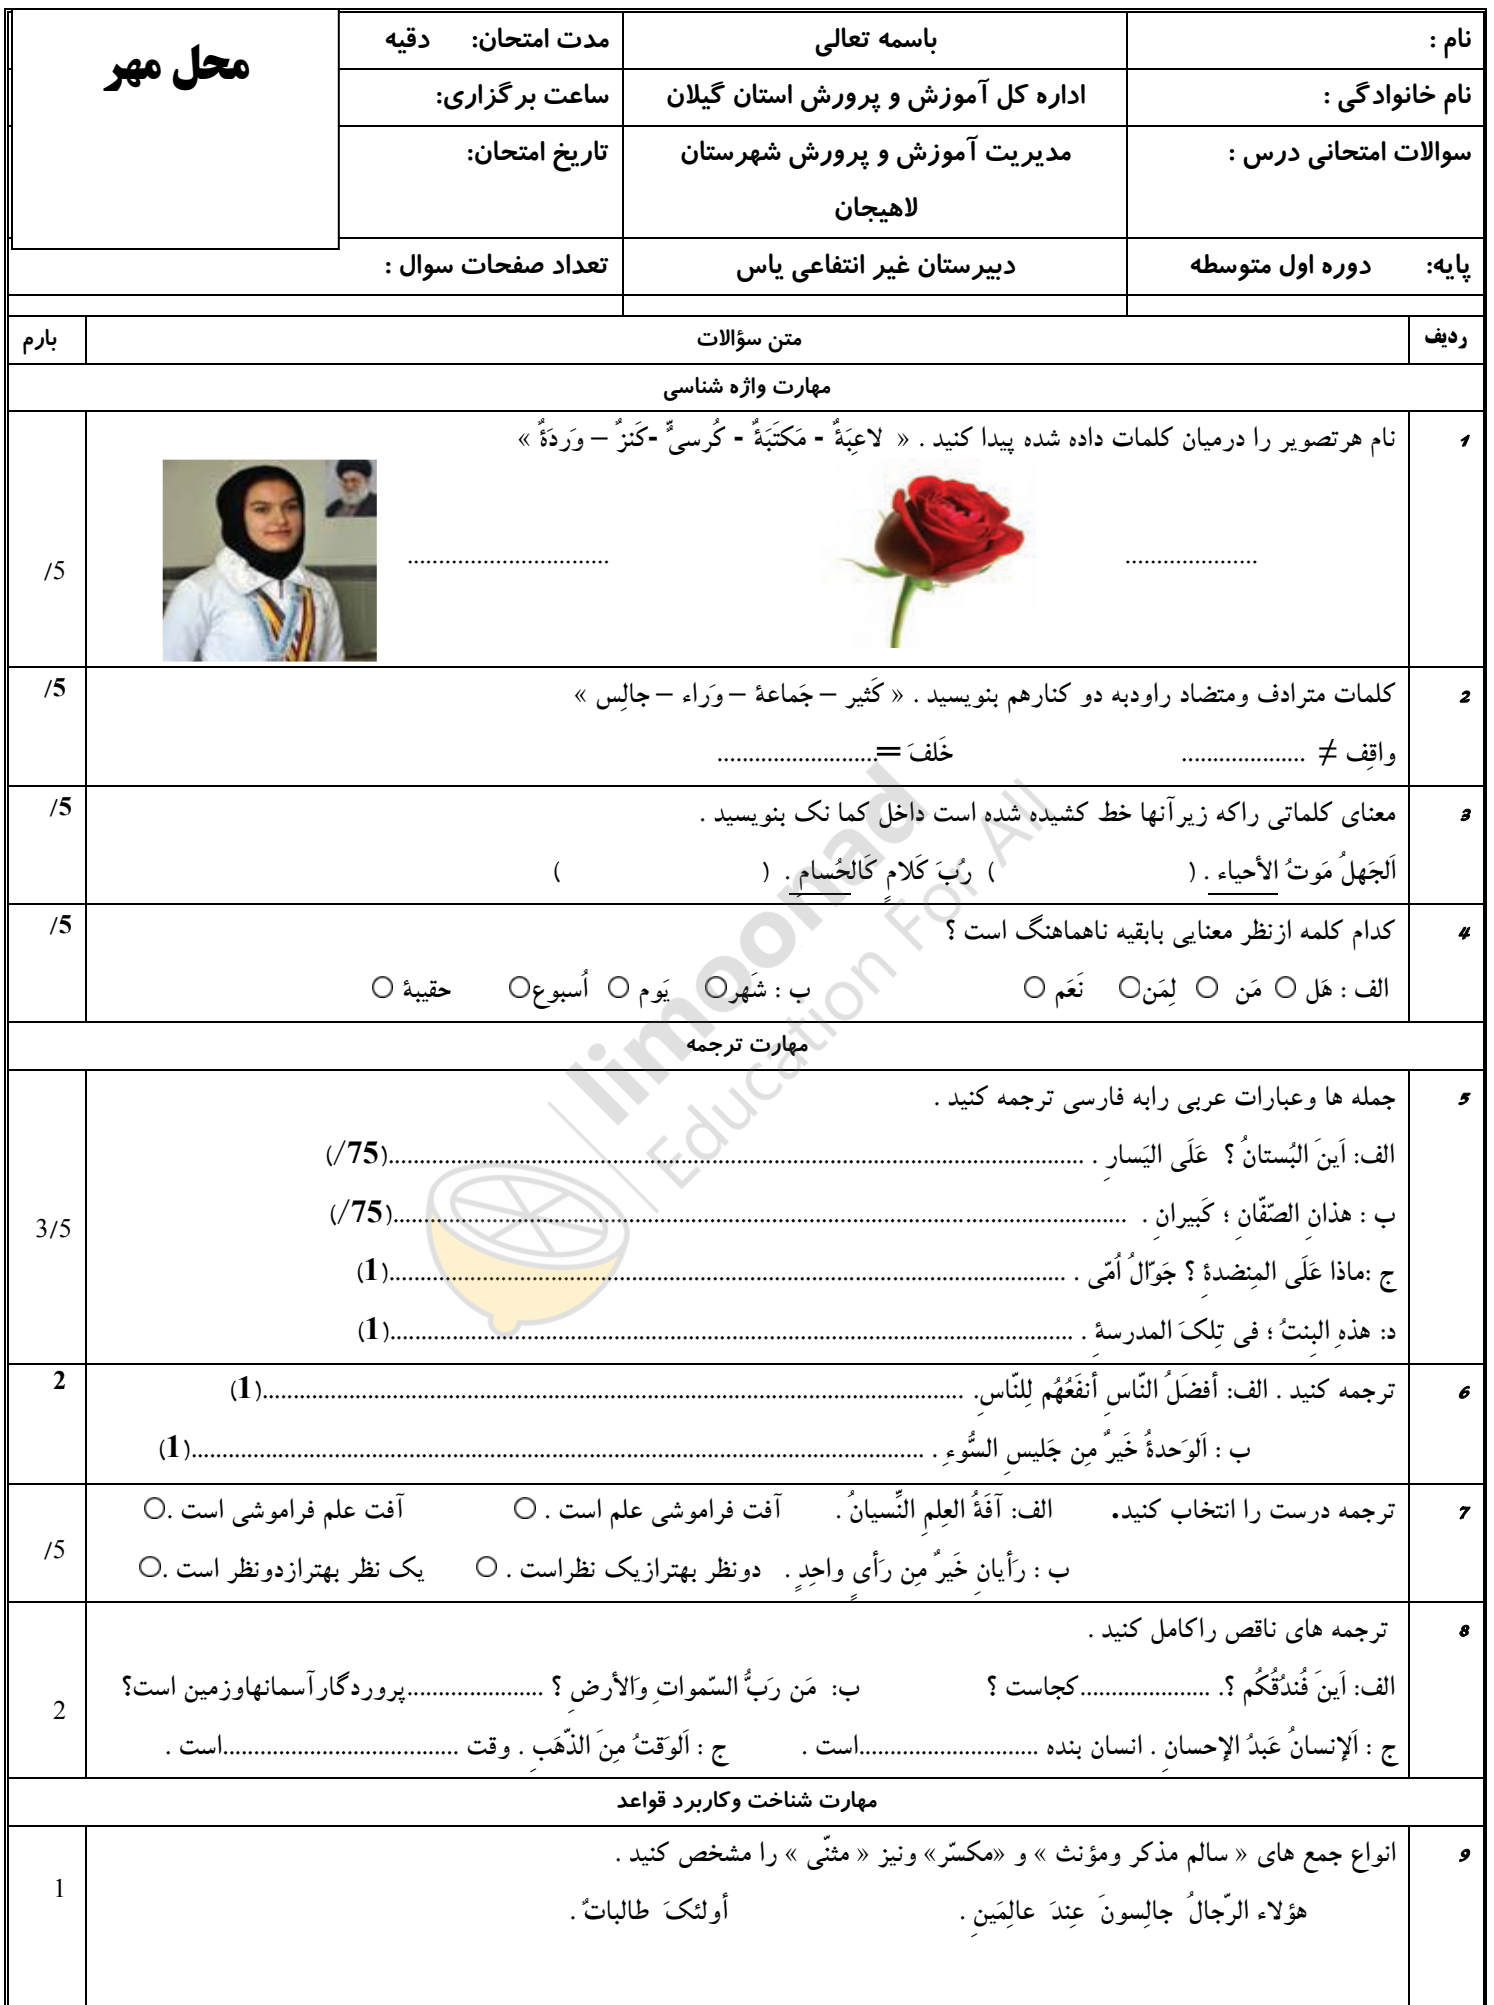 نام : باسمه تعالی مدت امتحان: دقیه محل مهر
نام خانوادگی : اداره کل آموزش و پرورش استان گیلان ساعت برگزاری:
سوالات امتحانی درس : مدیریت آموزش و پرورش شهرستان تاریخ امتحان:
لاهیجان
پایه: دوره اول متوسطه دبیرستان غیر انتفاعی یاس تعداد صفحات سوال :
ردیف متن سؤالات بارم
مهارت واژه شناسی
1 نام هرتصویر را درمیان کلمات داده شده پیدا کنید . « لاعِبَةٌ - مَکتَبَةٌ - کُرسیٌّ -کَنزٌ – وَردَةٌ »
..................... ................................ /5
2 کلمات مترادف ومتضاد راودبه دو کنارهم بنویسید . « کَثیر – جَماعة – وَراء – جالِس » /5
واقِف ≠ .................... خَلفَ =..........................
3 معنای کلماتی راکه زیرآنها خط کشیده شده است داخل کما نک بنویسید . /5
اَلجَهلُ مَوتُ الأحیاء . ( ) رُبَ کَلامٍ کَالحُسامِ . ( )
4 کدام کلمه ازنظر معنایی بابقیه ناهماهنگ است ؟ /5
الف : هَل ○ مَن ○ لِمَن○ نَعَم ○ ب : شَهر○ یَوم ○ اُسبوع○ حقیبة ○
مهارت ترجمه
5 جمله ها وعبارات عربی رابه فارسی ترجمه کنید .
الف: اَینَ البُستانُ ؟ عَلَی الیَسارِ . ........................................(/75)
ب : هذانِ الصّفّانِ ؛ کَبیرانِ . ........................................(/75)
3/5
ج :ماذا عَلَی المِنضدةِ ؟ جَوّالُ اُمّی . ........................................(1)
د: هذهِ البِنتُ ؛ فی تِلکَ المدرسةِ . ........................................(1)
6 ترجمه کنید . الف: أفضَلُ النّاسِ أنفَعُهُم لِلنّاسِ. ........................................(1) 2
ب : اَلوَحدةُ خَیرٌ مِن جَلیسِ السُّوءِ . ........................................(1)
7 ترجمه درست را انتخاب کنید. الف: آفَةُ العِلمِ النِّسیانُ . آفت فراموشی علم است . ○ آفت علم فراموشی است .○
ب : رَأیانِ خَیرٌ مِن رَأیٍ واحِدٍ . دونظر بهترازیک نظراست . ○ یک نظر بهترازدونظر است .○ /5
8 ترجمه های ناقص راکامل کنید .
الف: اَینَ فُندُقُکُم ؟. .....................کجاست ؟ ب: مَن رَبُّ السّمواتِ وَالأرضِ ؟ ......................پروردگارآسمانهاوزمین است؟ 2
ج : اَلإنسانُ عَبدُ الإحسانِ . انسان بنده .............................است . ج : اَلوَقتُ مِنَ الذّهَبِ . وقت ......................................است .
مهارت شناخت وکاربرد قواعد
9 انواع جمع های « سالم مذکر ومؤنث » و «مکسّر» ونیز « مثنّی » را مشخص کنید . 1
هؤلاء الرّجالُ جالِسونَ عِندَ عالِمَینِ . أولئکَ طالباتٌ .
limoonad
Education For All